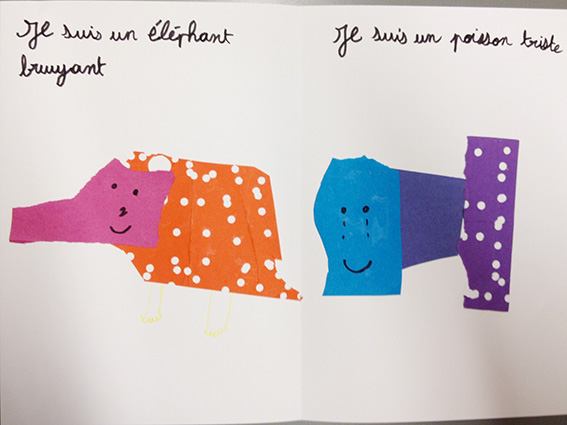 Je suis un éléphant
bruyant
Je suis un poisson triste